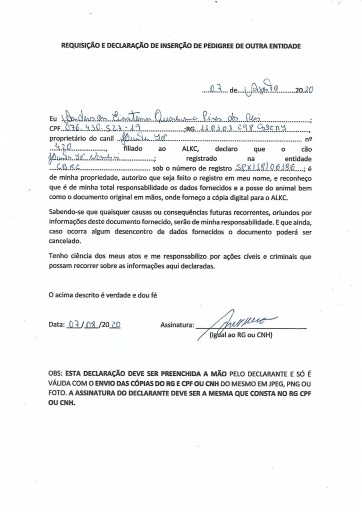 REQUISIÇÃO E DECLARAÇÃO DE INSERÇÃO DE PEDIGREE DE OUTRA ENTIDADE
07 de Agosto 2020
Eu Anderson
CPF. RG.
proprietário do canil nº
420, filiado ao ALKC, declaro que o cão
registrado na entidade
sob o número de registro é
de minha propriedade, autorizo que seja feito o registro em meu nome, e reconheço
que é de minha total responsabilidade os dados fornecidos e a posse do animal bem
como o documento original em mãos, onde forneço a cópia digital para o ALKC.
Sabendo-se que quaisquer causas ou consequências futuras recorrentes, oriundos por
informações deste documento fornecido, serão de minha responsabilidade. E que ainda,
caso ocorra algum desencontro de dados fornecidos o documento poderá ser
cancelado.
Tenho ciência dos meus atos e me responsabilizo por ações cíveis e criminais que
possam recorrer sobre as informações aqui declaradas.
O acima descrito é verdade e dou fé
Data: 07/08/2020 Assinatura:
(Igual ao RG ou CNH)
OBS: ESTA DECLARAÇÃO DEVE SER PREENCHIDA A MÃO PELO DECLARANTE E SÓ É
VÁLIDA COM O ENVIO DAS CÓPIAS DO RG E CPF OU CNH DO MESMO EM JPEG, PNG OU
FOTO. A ASSINATURA DO DECLARANTE DEVE SER A MESMA QUE CONSTA NO RG CPF
OU CNH.